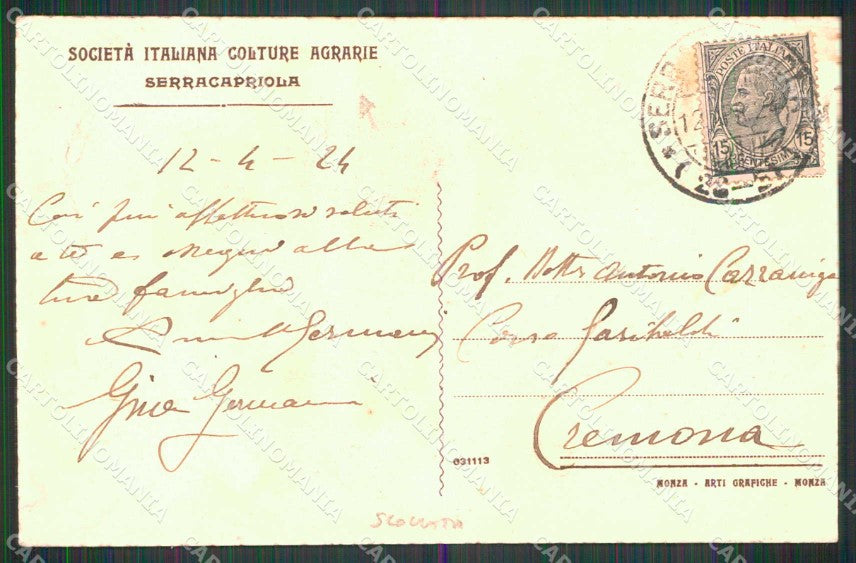 SOCIETÀ ITALIANA COLTURE AGRARIE
SERRACAPRIOLA
12-4-24
Coi più affettuosi saluti
a te e ossequi alla
tua famiglia
Germani
Gina Germani
POSTE ITALIANE
15 CENTESIMI 15
Prof. Dott. Antonio Carraniga
Corso Garibaldi
Cremona
031113
MONZA - ARTI GRAFICHE - MONZA
SCOLLATA
CARTOLINOMANIA